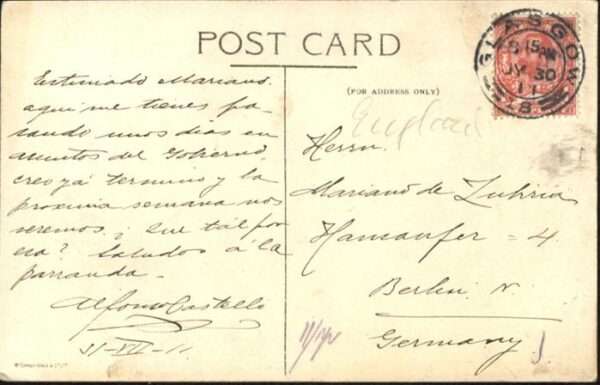 POST CARD
(FOR ADDRESS ONLY)
GLASGOW
8 15 AM
JY 30
11
England
Estimado Mariano.
aqui me tienes pa-
sando unos dias en
asuntos del Gobierno,
creo ya termino y la
proxima semana nos
veremos; Que tal por
esa? Saludos a la
parranda.
Alfonso Castello
31-VII-11.
Herrn.
Mariano de
Hansaufer = 4.
Berlin. N.
Germany